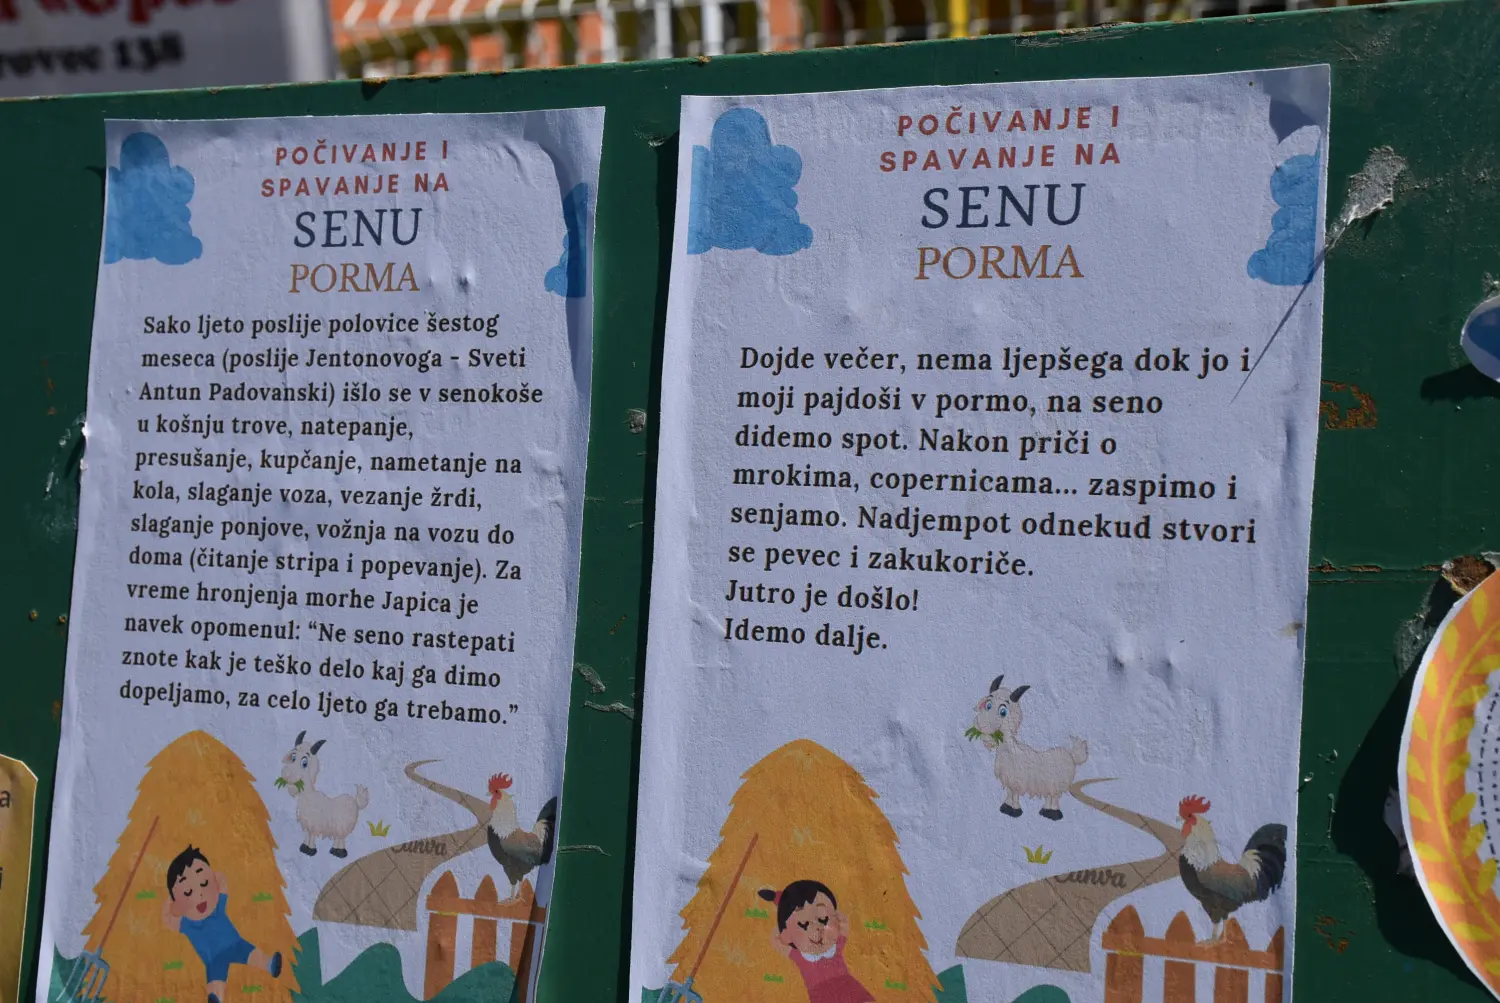 rovec 138
POČIVANJE I
SPAVANJE NA
SENU
PORMA
Sako ljeto poslije polovice šestog
meseca (poslije Jentonovoga - Sveti
Antun Padovanski) išlo se v senokoše
u košnju trove, natepanje,
presušanje, kupčanje, nametanje na
kola, slaganje voza, vezanje žrdi,
slaganje ponjove, vožnja na vozu do
doma (čitanje stripa i popevanje). Za
vreme hronjenja morhe Japica je
navek opomenul: “Ne seno rastepati
znote kak je teško delo kaj ga dimo
dopeljamo, za celo ljeto ga trebamo.”
Canva
POČIVANJE I
SPAVANJE NA
SENU
PORMA
Dojde večer, nema ljepšega dok jo i
moji pajdoši v pormo, na seno
didemo spot. Nakon priči o
mrokima, copernicama... zaspimo i
senjamo. Nadjempot odnekud stvori
se pevec i zakukoriče.
Jutro je došlo!
Idemo dalje.
Canva